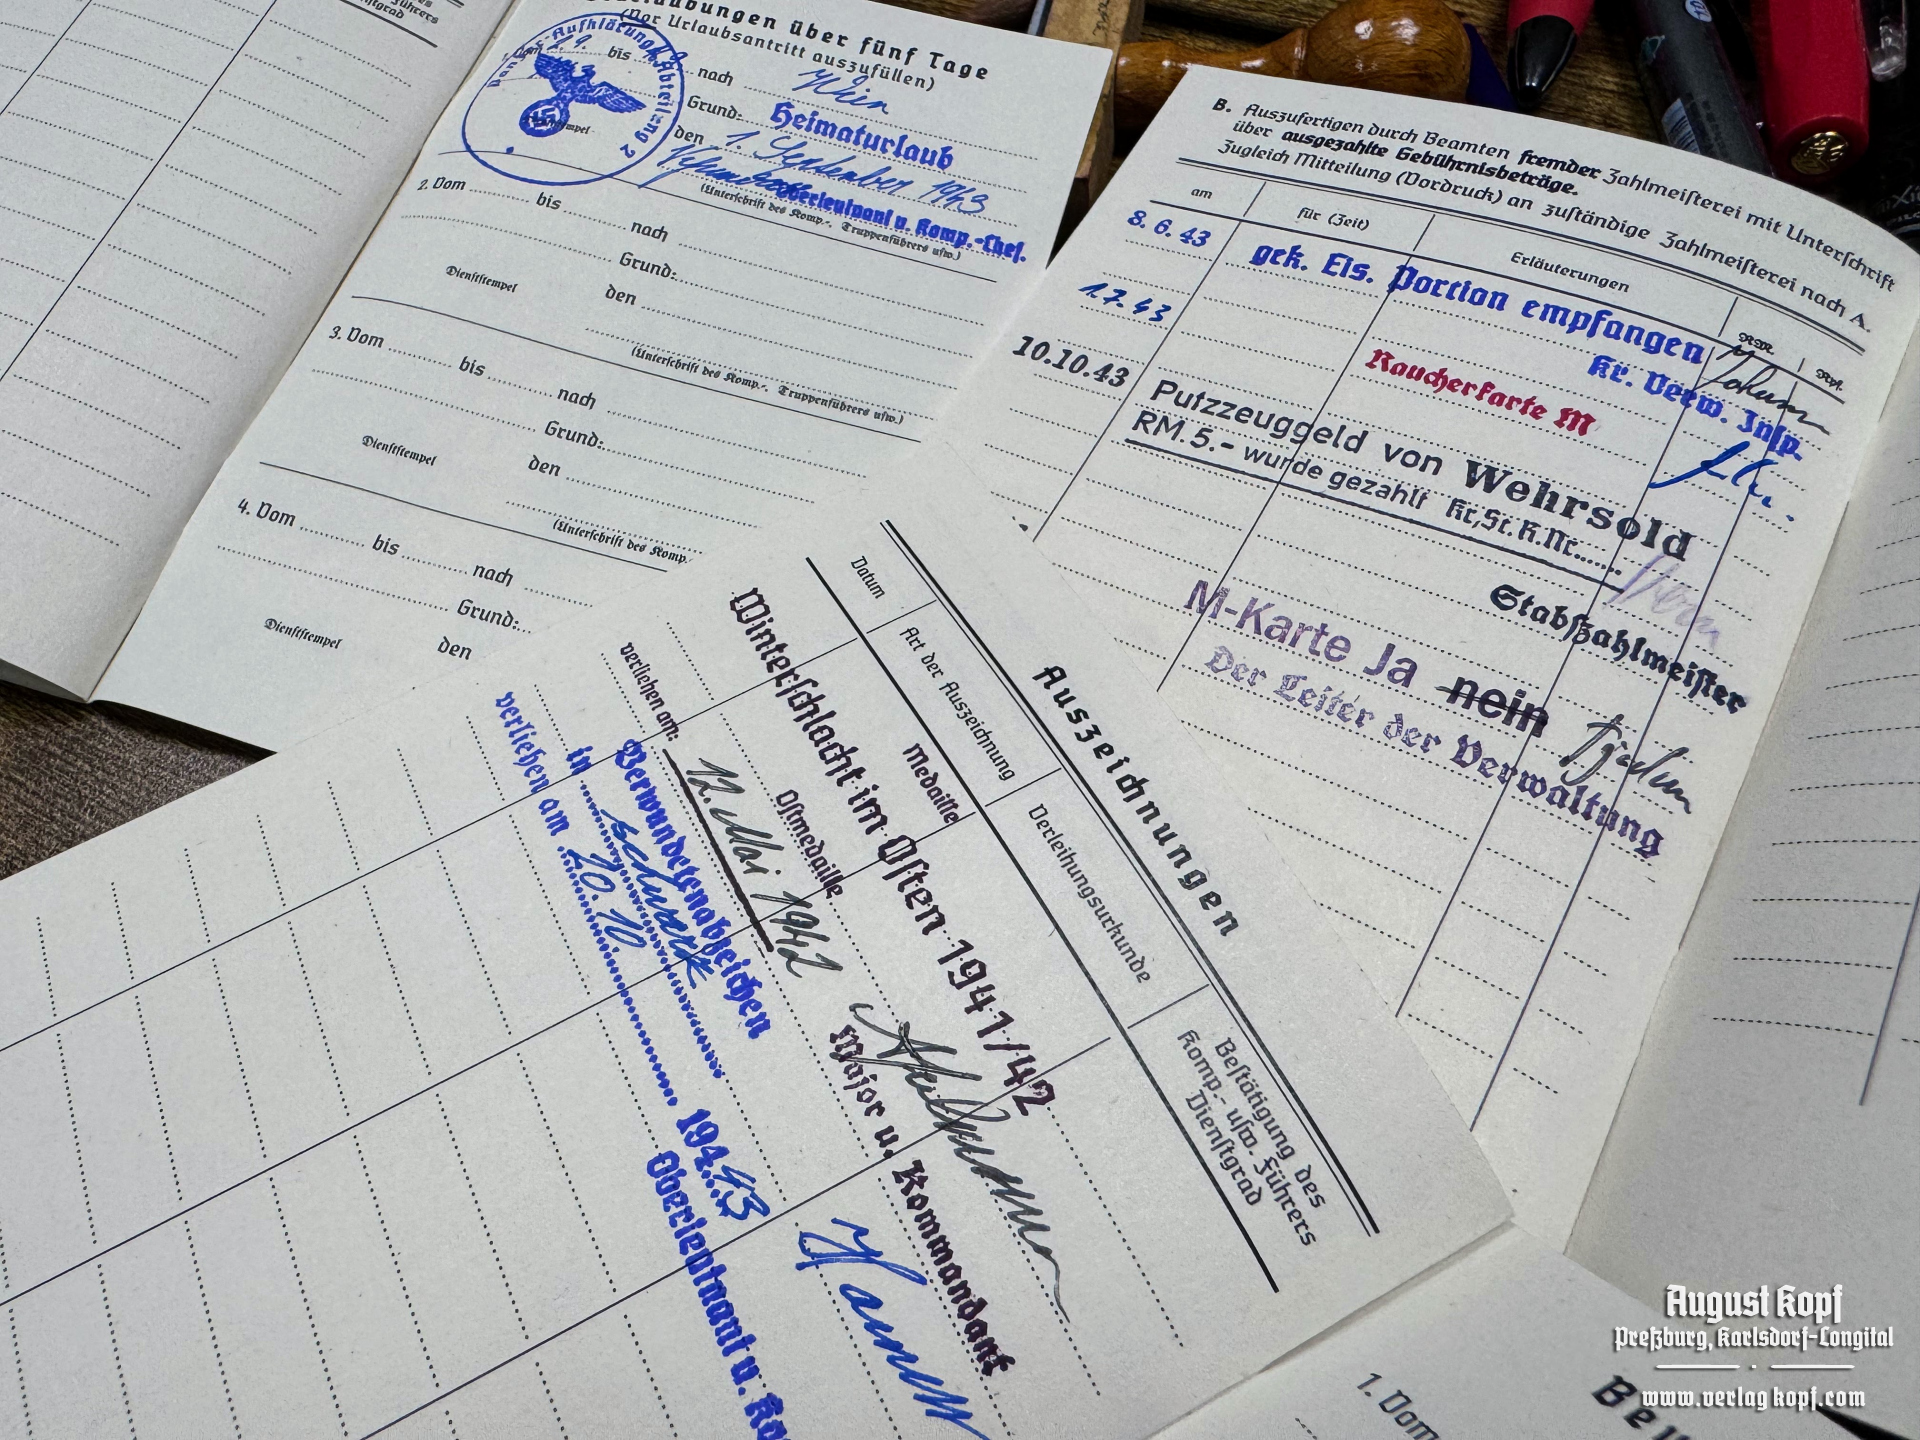 Führers
Dienstgrad
Beurlaubungen über fünf Tage
(Vor Urlaubsantritt auszufüllen)
bis
nach Wien
Grund: Heimaturlaub
den 1. September 1943
Oberleutnant u. Komp.-Chef.
(Unterschrift des Komp.-, Truppenführers usw.)
Panzer-Aufklärungs-Abteilung 2
2. Vom
bis
nach
Grund:
Dienststempel
den
(Unterschrift des Komp.-, Truppenführers usw.)
3. Vom
bis
nach
Grund:
Dienststempel
den
(Unterschrift des Komp.
4. Vom
bis
nach
Grund:
Dienststempel
den
B. Auszufertigen durch Beamten fremder Zahlmeisterei mit Unterschrift
über ausgezahlte Gebührnisbeträge.
Zugleich Mitteilung (Vordruck) an zuständige Zahlmeisterei nach A.
am
für (Zeit)
Erläuterungen
RM.
Rpf.
8. 6. 43
gek. Eis. Portion empfangen
Kr. Verw. Insp.
1.7.43
Raucherkarte M
10.10.43
Putzzeuggeld von Wehrsold
RM. 5.- wurde gezahlt Kr,St.K.Nr......
Stabszahlmeister
M-Karte Ja nein
Der Leiter der Verwaltung
Auszeichnungen
Datum
Art der Auszeichnung
Verleihungsurkunde
Bestätigung des
Komp.- usw. Führers
Dienstgrad
Medaille
Winterschlacht im Osten 1941/42
Ostmedaille
verliehen am: 12. Mai 1942
Major u. Kommandant
Verwundetenabzeichen
in schwarz
verliehen am 20. 10. 1943
Oberleutnant u. Ko
1. Vom
Beu
August Kopf
Preßburg, Karlsdorf-Longital
www.verlagkopf.com